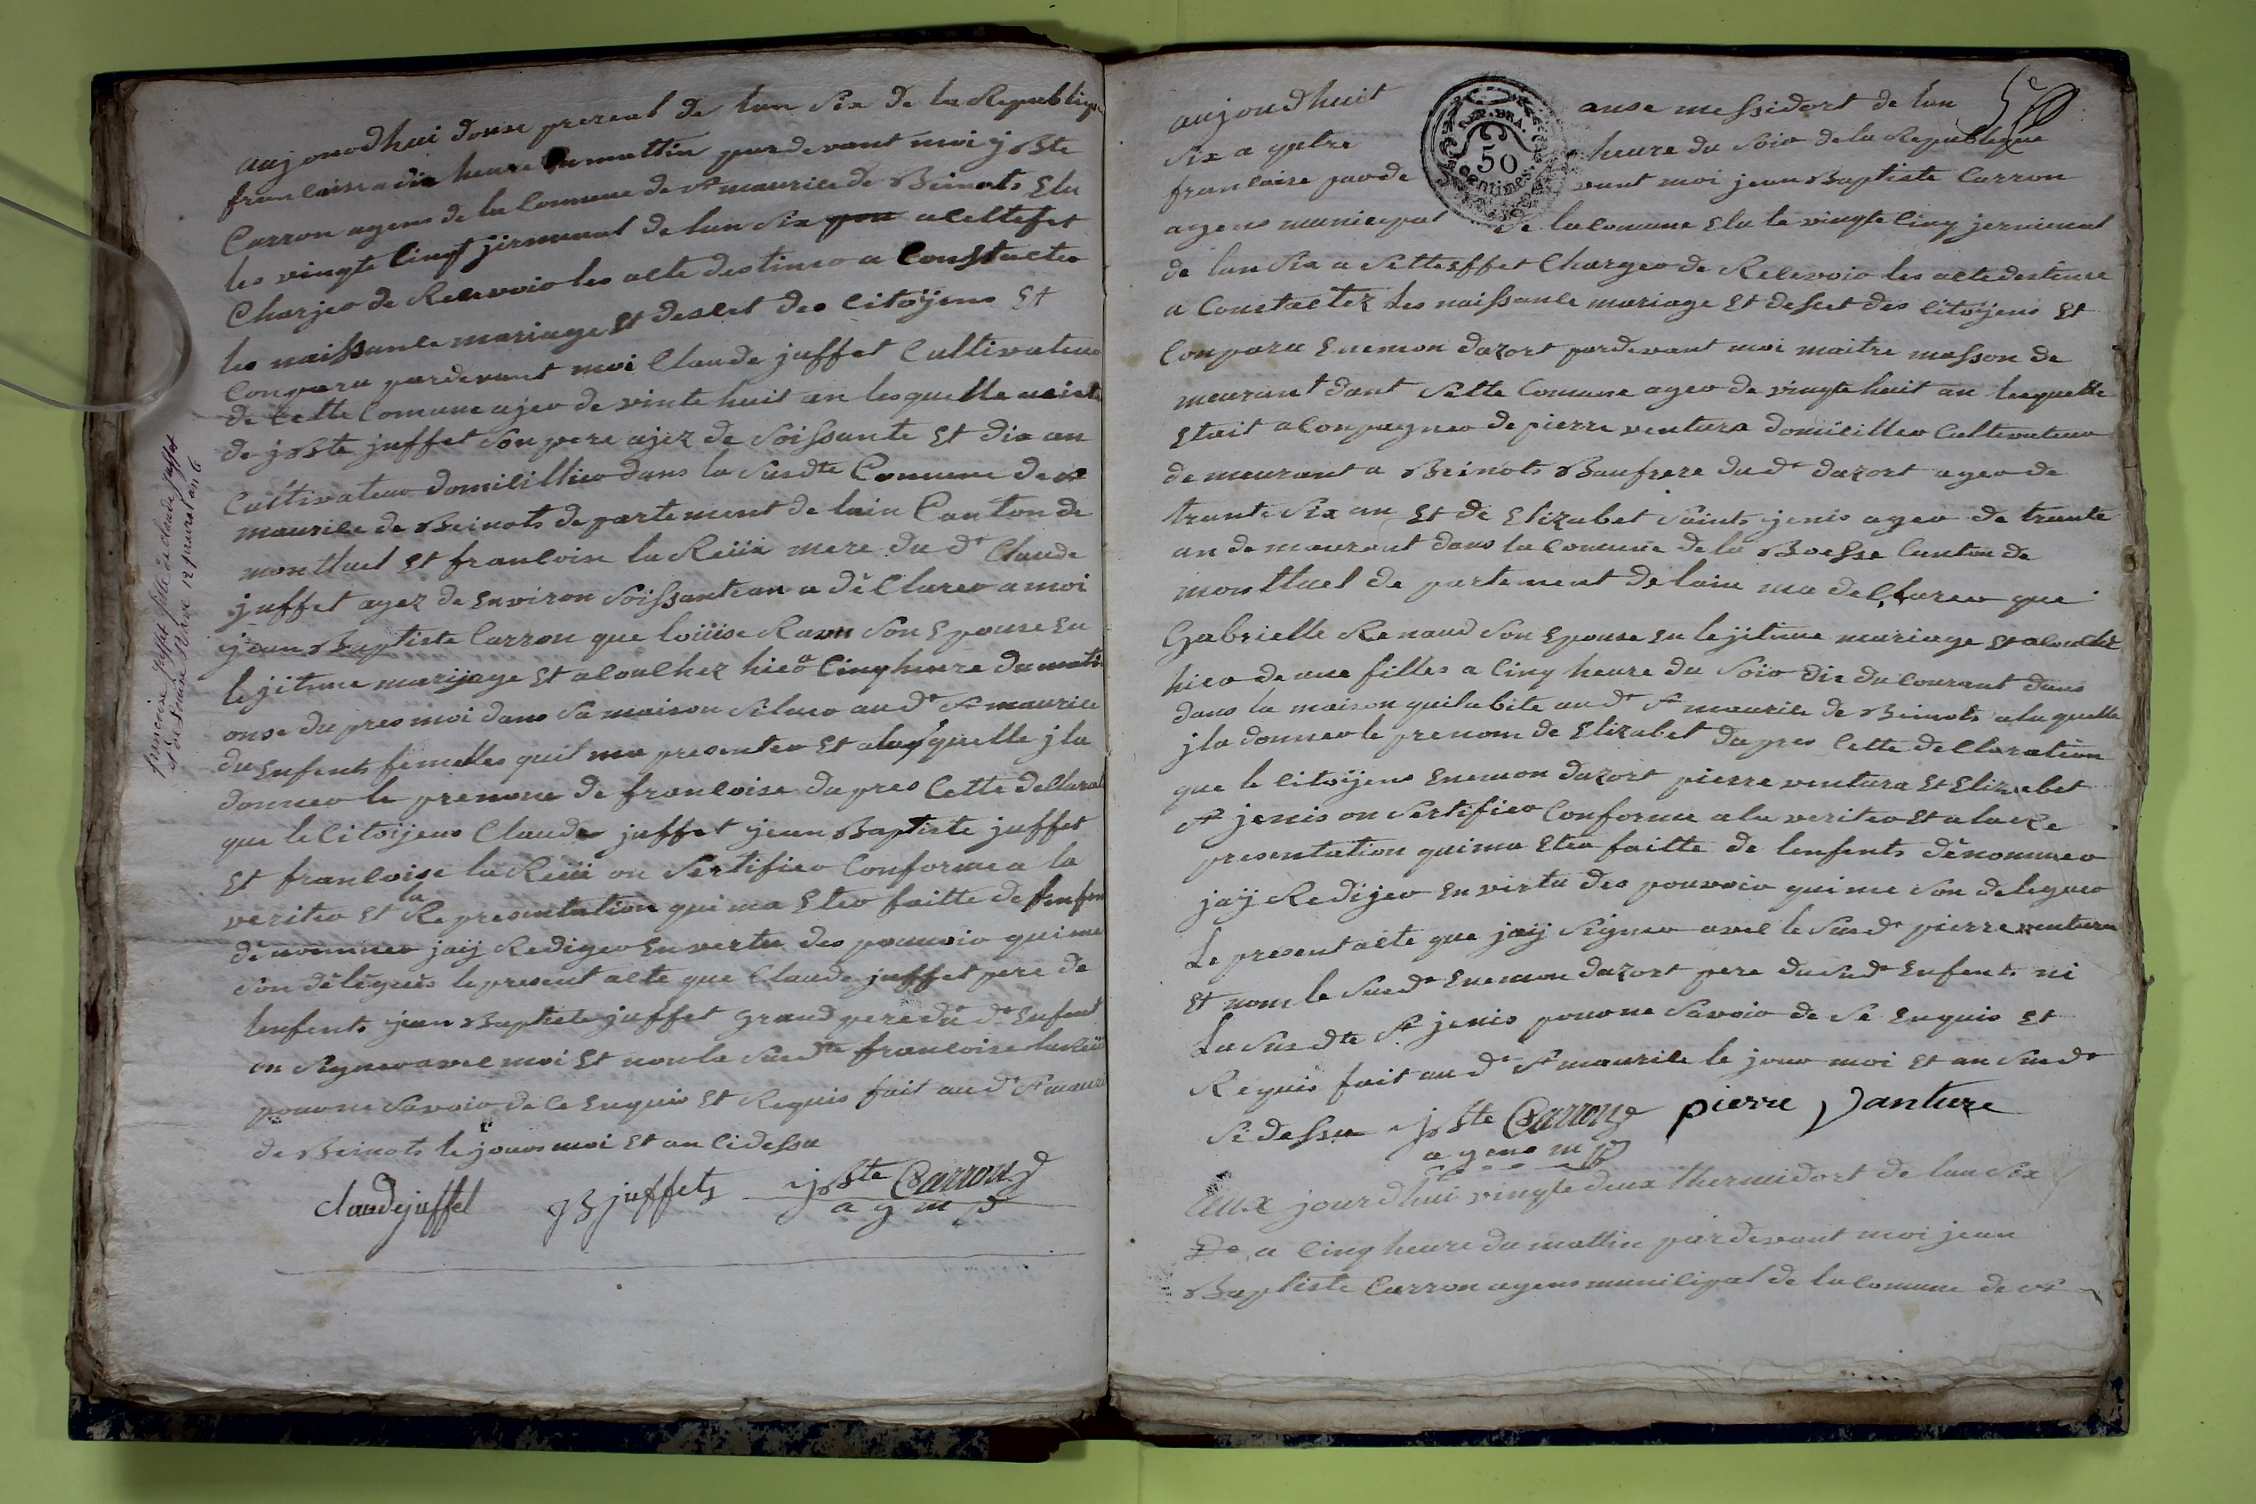 aujourdhui douse prereal de lan Six de la Republique
francaise a dix heure du mattin pardevant moi j Bste
Carron agens de la Commune de St maurice de Beinots Elu
les vingte cinqt jirminal de lan Six a celtefet
Charjeo de Relevoir les alte destineo a Constacter
les naissance mariage Et deslet des citoÿens Et
Conparu pardevant moi Claude juffet Cultivateur
de Cette Comune ajeo de vinte huit an lesquelle
de j Bste juffet Son pere ajez de Soissante Et dix an
Cultivateur domicillieo dans la Susdte Comune de st
maurice de Beinots departement de lain Canton de
montluel Et francoise la Reüii mere du dt Claude
juffet agez de Environ Soissante an a déClareo a moi
jean Baptiste Carron que loüise Ravu Son Epouse En
lejitime marijage Et a coulhez hieo a Cinq heure du matin
onse du pres moi dans Sa maison Situeo au dt St maurice
du Enfents femelles quil ma presenteo Et a laquelle j la
donneo le prenome de francoise du pres Cette dellarat
que le Citoijens Claude juffet jean Baptiste juffet
Et francoise la Reüii on Sertifieo Conforme a la
veriteo Et la Representation qui ma Eteo faitte de lenfen
dénommeo jaij Redigeo En vertu des pouvoir qui me
Son délégués le present alte que Claude juffet pere de
lenfents jean Baptiste juffet grand pere du dt Enfent
on Signeo avec moi Et non la Susdte francoise la Reüi
pouvoir Savoir de Ce Enquis Et Requis fait au dt St mauri
de Beinots le jours moi Et an Cidessu
claude juffet j B juffets j Bste Carron
a g m p
francoise juffet fille de claude juffet
et de Louise Ravu 12 prereal an 6
aujourdhuit onse messidort de lan
Six a quatre heure du Soir de la Republique
francaise parde vant moi jean Baptiste Carron
agens municipal de la Comune Elu le vingte Cinq jerminal
de lan Six a Setteffet Chargeo de Relevoir les alte destineo
a Constactez les naissance mariage Et deslet des citoÿens Et
Conparu Enemon dazort pardevant moi maitre masson de
meurant dant Sette Comune ageo de vingte huit an lequelle
Etait aConpagneo de pierre ventura domicilleo Cultivateur
de meurant a Beinots Baufrere du dt dazort ageo de
trante Six an Et de Elizabet Saints jenis ageo de trante
an de meurant dans la Comune de la Boesse Canton de
montluel de partement de lain ma dellareo que
Gabrielle Renaud Son Epouse En lejitime mariage Et acoulhé
hieo de une filles a Cinq heure du Soir dix du Courant dans
dans la maison quilabite au dt St maurice de Beinots a la quelle
j la donneo le prenom de Elizabet du pres Cette dellaration
que le Citoijens Enemon dazort pierre ventura Et Elizabet
St jenis on Sertifieo Conforme a la veriteo Et a la Re
presentation qui ma Eteo faitte de lenfents dénommeo
jaij Redijeo En virtu des pouvoir qui me Son delegueo
Le present alte que jaij Signeo avec le Susdt pierre ventura
Et nom le Susdt Enemon dazort pere du Susdt Enfents ni
La Susdte St jenis pouvoir Savoir de Se Enquis Et
Requis fait au dt St maurice le jour moi Et an Susdt
Si dessu j Bste Carron pierre Vanture
agens m p
Aux jourdhui vingte deux thermidort de lan Six
a Cinq heure du mattin pardevant moi jean
Baptiste Carron agens municipal de la Comune de St
REP. FRA.
50
centimes